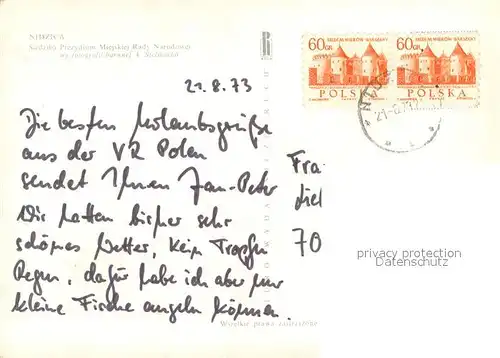 NIDZICA
Siedziba Prezydium Miejskiej Rady Narodowej
wg fotografii barwnej
21.8.73
Die besten Urlaubsgrüße
aus der VR Polen
sendet Ihnen Jan-Peter
Wir hatten bisher sehr
schönes Wetter, kein Tropfen
Regen, dafür habe ich aber nur
kleine Fische angeln können.
Wszelkie prawa zastrzeżone
60GR
700 LECIE M. WARSZAWY
POLSKA
60GR
700 LECIE M. WARSZAWY
POLSKA
Fra
diel
70
privacy protection
Datenschutz